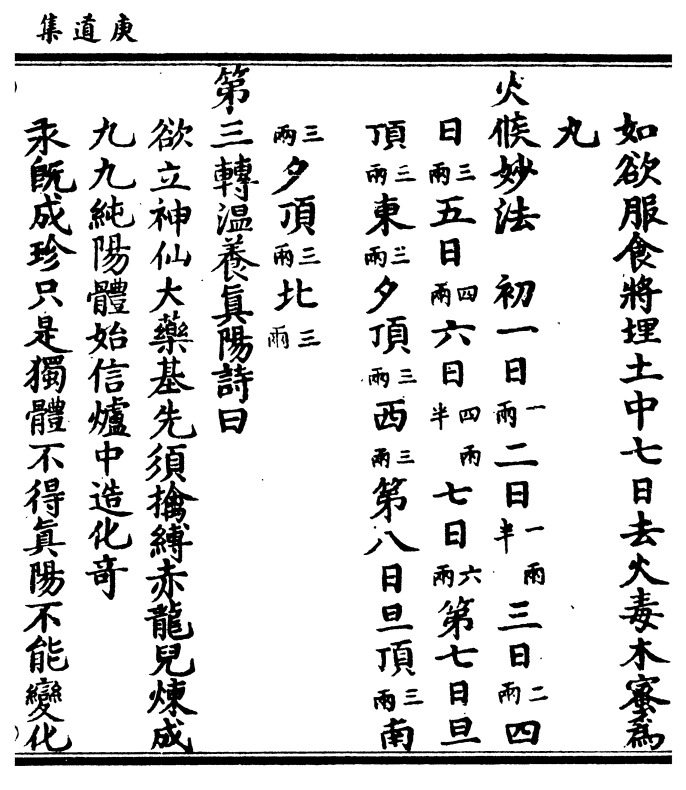 庚道集
如欲服食將埋土中七日去火毒木蜜爲
丸
火候妙法　初一日一兩二日一兩半三日二兩四
日三兩五日四兩六日四兩半七日六兩第七日旦
頂三兩東三兩夕頂三兩西三兩第八日旦頂三兩南
三兩夕頂三兩北三兩
第三轉溫養眞陽詩曰
欲立神仙大藥基先須擒縛赤龍兒煉成
九九純陽體始信爐中造化竒
汞旣成珍只是獨體不得眞陽不能變化